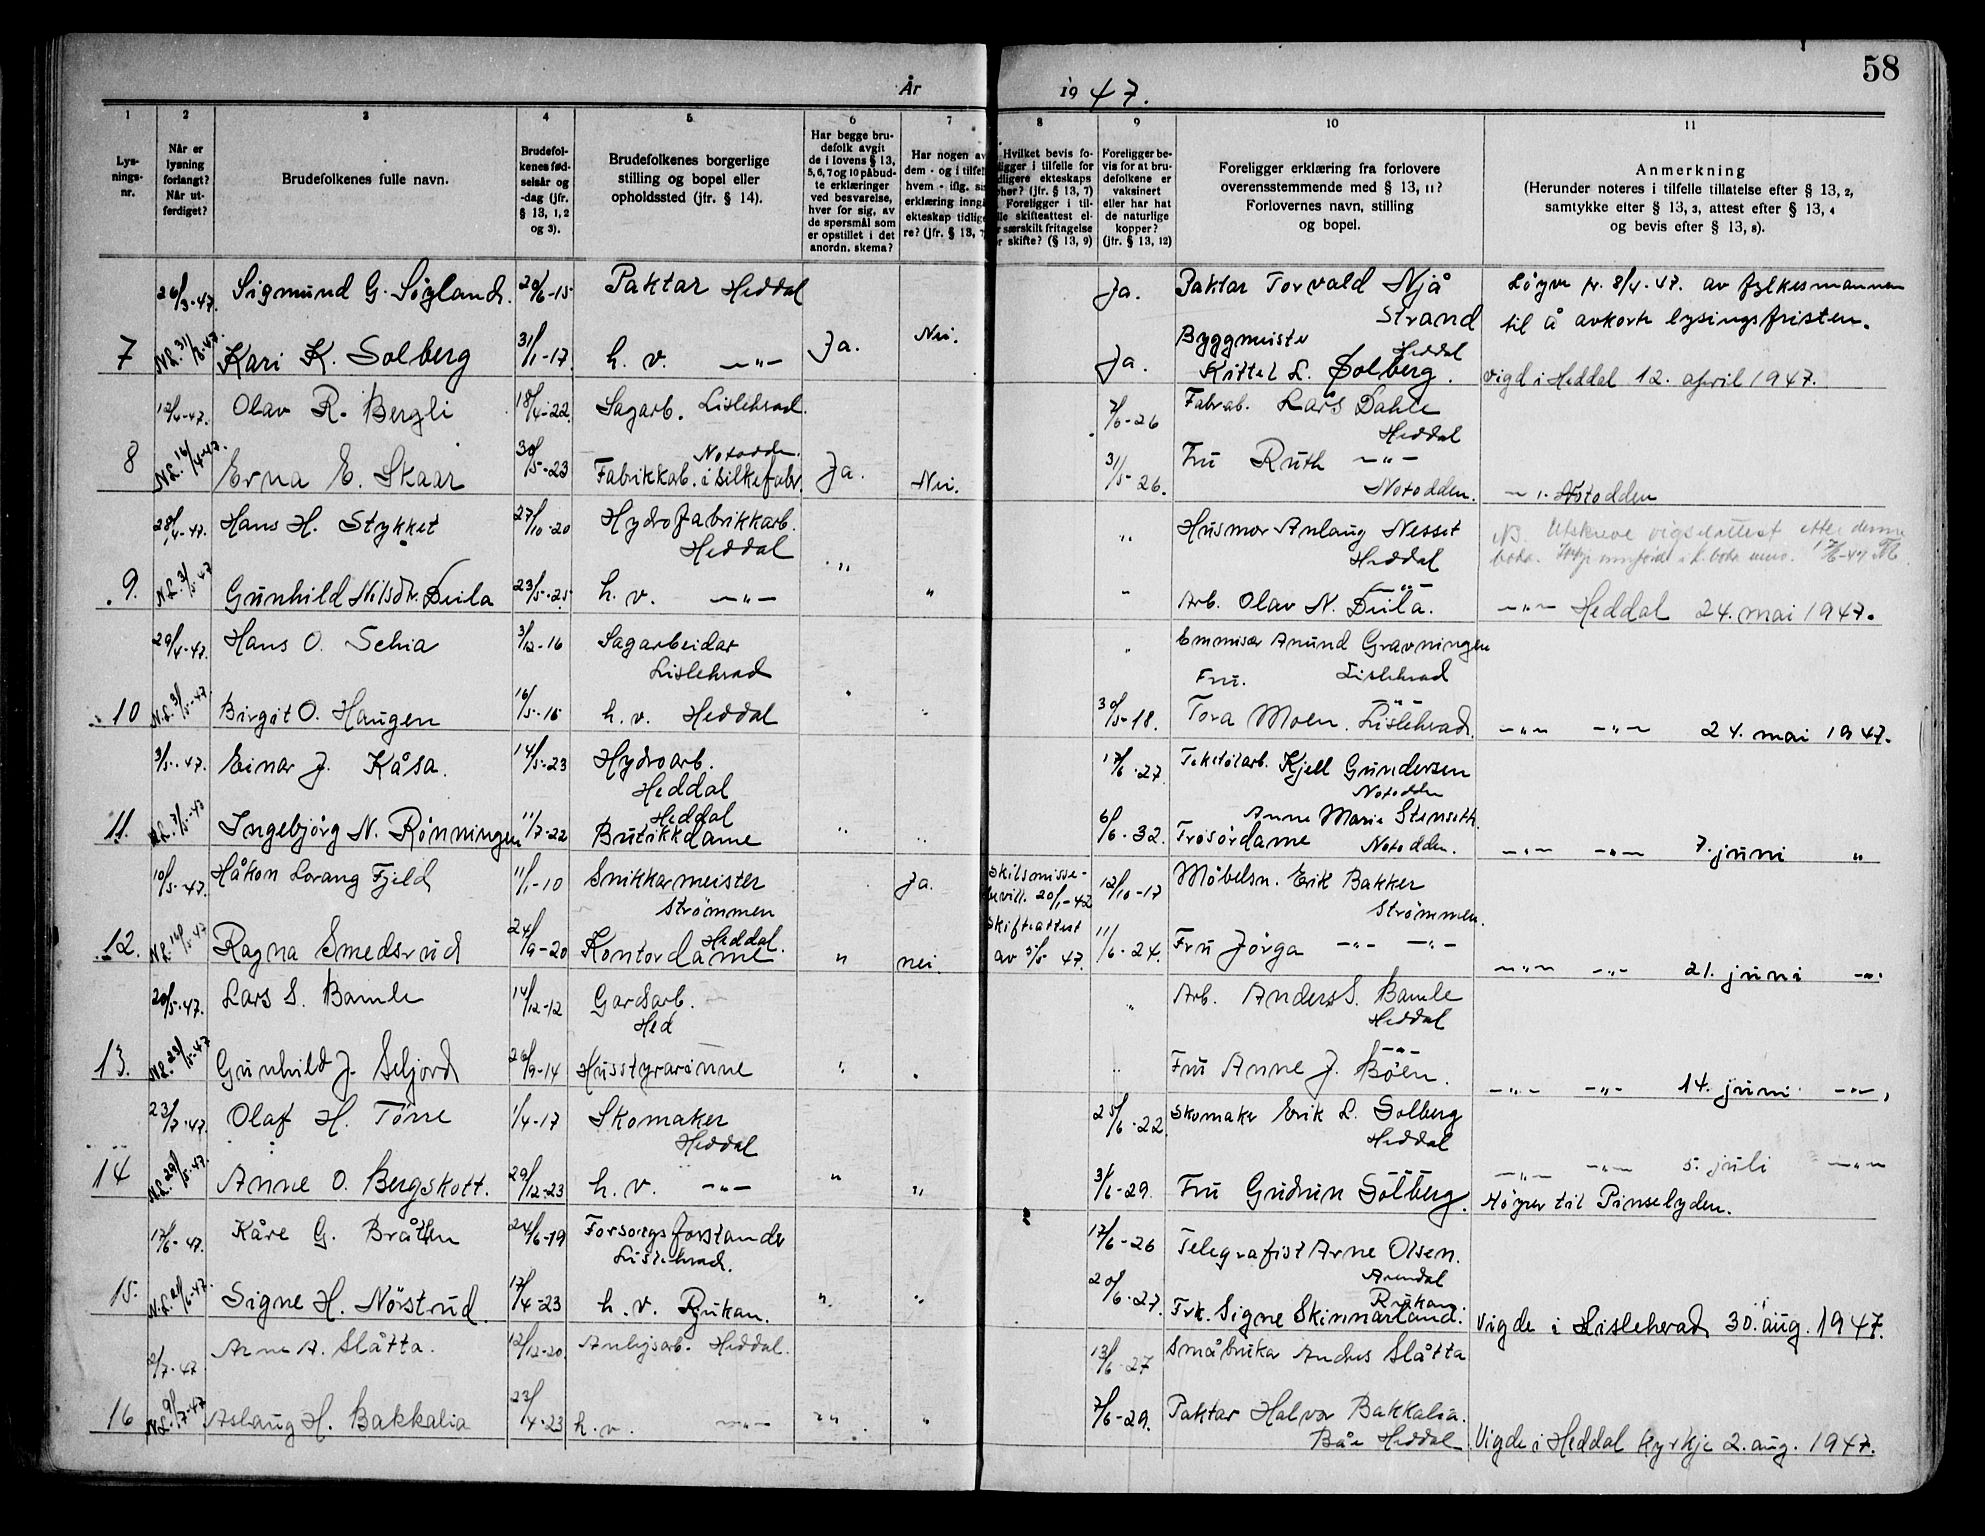 58
År 1947.
1 2 3 4 5 6 7 8 9 10 11
Lys-
nings-
nr.
Når er
lysning
forlangt?
Når ut-
ferdiget?
Brudefolkenes fulle navn.
Brudefol-
kenes fød-
selsår og
-dag (jfr.
§ 13, 1, 2
og 3).
Brudefolkenes borgerlige
stilling og bopel eller
opholdssted (jfr. § 14).
Har begge bru-
defolk avgit
de i lovens § 13,
5, 6, 7 og 10 påbud-
te erklæringer
ved besvarelse,
hver for sig, av
de spørsmål som
er opstillet i det
anordn. skema?
Har nogen av
dem - og i tilfel
hvem - iflg. sin
erklæring inngå
ekteskap tidlige
re? (jfr. § 13, 7
Hvilket bevis fo-
ligger i tilfelle for
dligere ekteskaps
pher? (jfr. § 13, 7)
Foreligger i til-
lle skifteattest el-
r særskilt fritagelse
r skifte? (§ 13, 9)
Foreligger be-
vis for at bru-
defolkene er
vaksinert
eller har hat
de naturlige
kopper?
(jfr. § 13, 12)
Foreligger erklæring fra forlovere
overensstemmende med § 13, 11?
Forlovernes navn, stilling
og bopel.
Anmerkning
(Herunder noteres i tilfelle tillatelse efter § 13, 2,
samtykke efter § 13, 3, attest efter § 13, 4
og bevis efter § 13, 8).
26/3-47. Sigmund G. Søyland. 20/6-15 Paktar Heddal Ja. Paktar Torvald Njå Løyve fr. 8/4-47. av fylkesmannen
Strand til å avkorte lysingsfristen.
7 N.L. 31/3-47. Kari K. Solberg 31/1-17. h. v. —"— Ja. Nei. Ja. Byggmeister Heddal
Kittel L. Solberg. Vigd i Heddal 12. april 1947.
12/4-47. Olav R. Bergli 18/4-22. Sagarb. Lisleherad. 7/6-26 Fabrab. Lars Dahle
Heddal
8 N.L. 16/4-47. Erna E. Skaar 30/5-23 Notodden.
Fabrikkab. i Silkefabr. Ja. Nei. 31/5-26. Fru Ruth —"—
Notodden. —"— Notodden
28/4-47. Hans H. Stykket 27/10-20 Hydro fabrikkarb.
Heddal " Husmor Anlaug Nesset
Heddal NB. Utskreve vigselattest etter denne
boka.
9. N.L. 3/5-47 Gunhild Nilsdtr. Deila 23/5-25 h. v. —"— " " " Arb. Olav N. Deila. —"— —"— Heddal 24. mai 1947.
29/4-47. Hans O. Schia 3/12-16 Sagarbeidar
Lisleherad " Emmisær Anund Gravningen
Lisleherad
10 N.L. 3/5-47. Birgit O. Haugen 16/5-15 h. v. Heddal " " 30/5-18. Fru.
Tora Moen. —"— Lisleherad. —"— —"— 24. mai 1947.
3/5-47. Einar J. Kåsa. 14/5-23 Hydroarb.
Heddal 17/6-27. Kjell Gundersen
Notodden
11. N.L. 7/5-47 Ingebjørg N. Rønningen 11/7-22 Heddal
Butikkdame " " 6/6-32. Anne Marie Stenseth.
Frisørdame Notodden. —"— —"— 7. juni "
10/5-47. Håkon Lorang Fjeld 11/1-10 Snikkarmeister
Strømmen Ja. Skilsmisse-
bevill. 20/1-42 12/10-17 Møbelsn. Erik Bakker
Strømmen.
12. N.L. 16/5-47 Ragna Smedsrud 24/9-20 Heddal.
Kontordame " nei. Skifteattest
av 5/5 47. 11/6-24. Fru Jørga —"— —"— —"— —"— 21. juni —"—
20/5-47. Lars S. Bamle 14/12-12 Gardsarb.
Hed " Arb. Anders S. Bamle
Heddal
13. N.L. 23/5-47 Gunhild J. Seljord 26/9-14 Husstyrarinne " " " Fru Anne J. Bøen. —"— —"— —"— 14. juni —"—
23/7-47. Olaf H. Tørre 1/4-17 Skomaker
Heddal 25/6-22 Skomaker Erik L. Solberg
Heddal
14 N.L. 29/5-47. Anne O. Bergskott. 29/12-23 h. v. —"— " " 3/6-29. Fru Gudrun Solberg. —"— —"— —"— 5. juli —"—
Høyrer til Pinselyden.
17/6-47. Kåre G. Bråten 24/6-19 Forsorgsforstander
Lisleherad. 17/6-26 Telegrafist Arne Olsen.
Arendal
15. N.L. 20/6-47. Signe H. Nørstrud. 17/4-23 h. v. Rjukan. " " 20/6-27. Rjukan.
Frk. Signe Skinnarland. Vigde i Lisleherad 30. aug. 1947.
2/7-47 Arne A. Slåtta. 12/12-20. Anleggsarb. Heddal. 13/6-27 Småbruker Andres Slåtta
16 N.L. 9/7-47 Aslaug H. Bakkalia 23/4-23 h. v. —"— " " 7/6-29. Paktar Halvor Bakkalia.
Båe Heddal Vigde i Heddal kyrkje 2. aug. 1947.